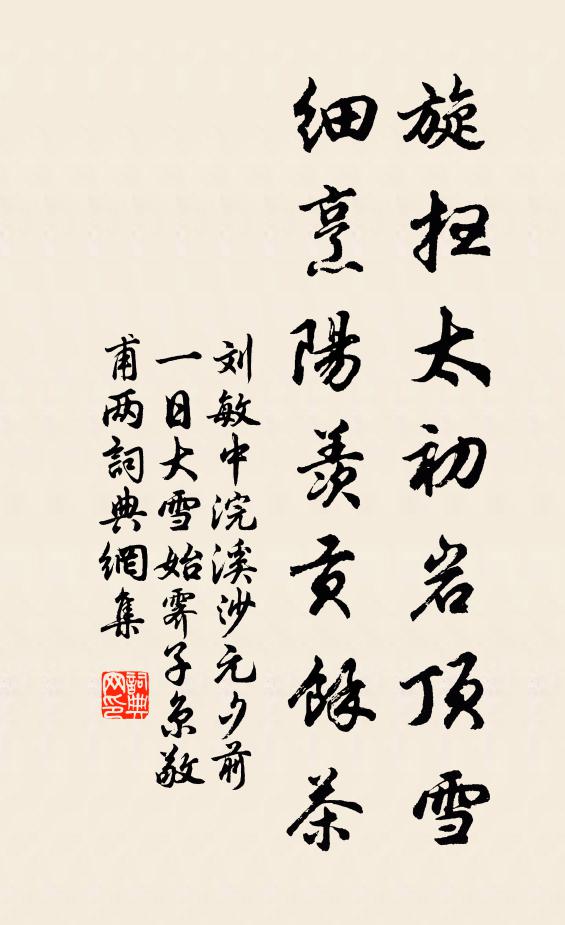 旋扫太初岩顶雪
细烹陽羡贡餘茶
刘敏中浣溪沙元夕前
一日大雪始霁子京敬
甫两詞典網集
詞典
网印